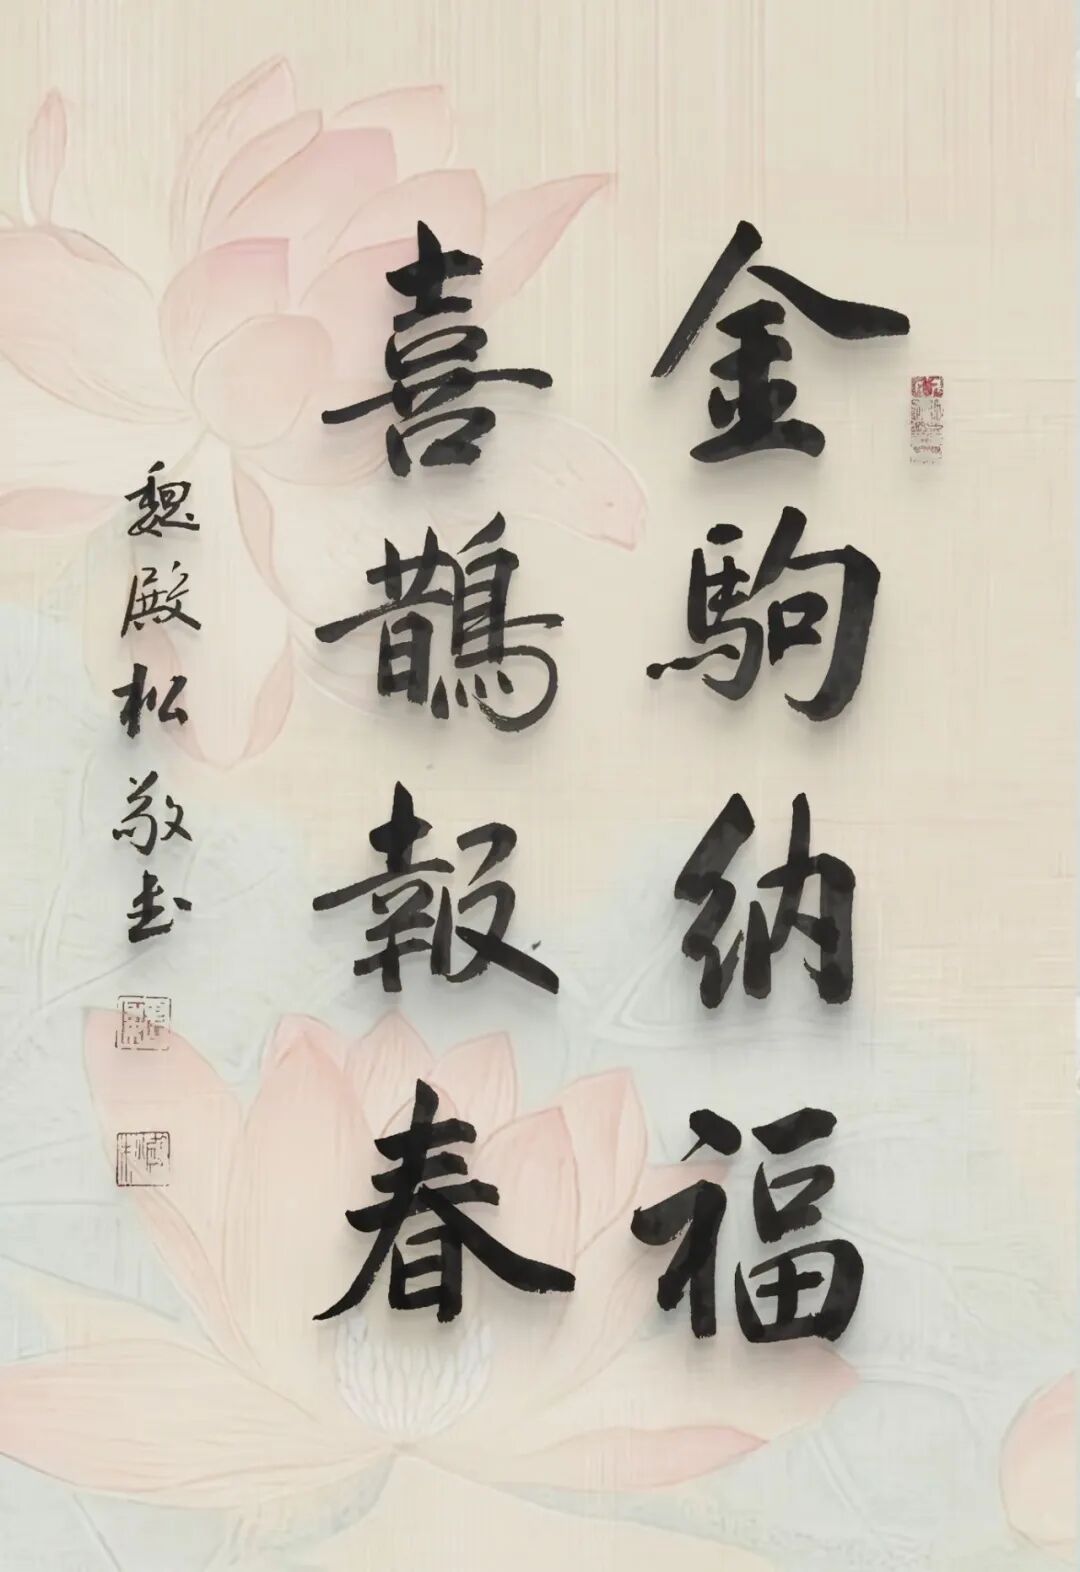 金駒纳福
喜鵲報春
魏殿松敬书